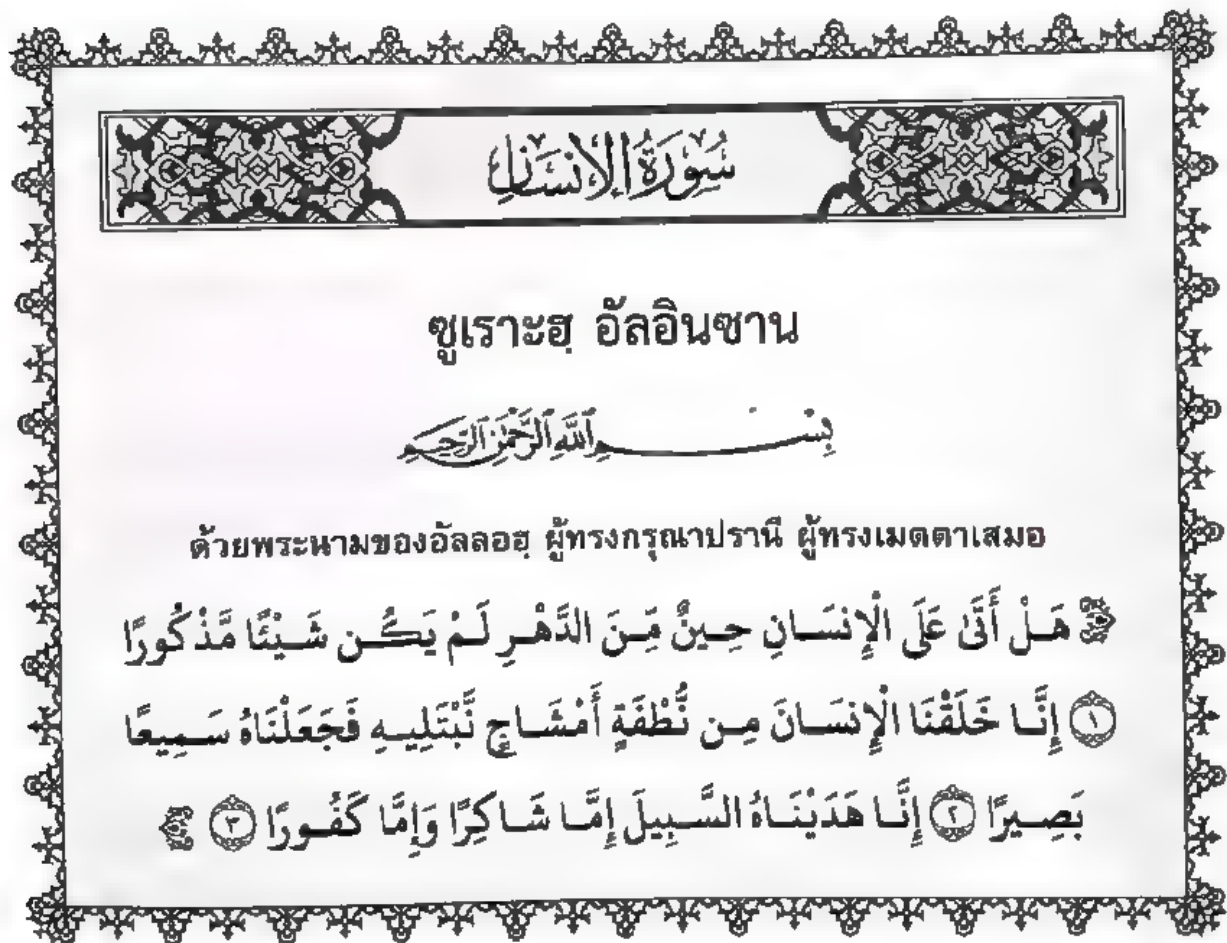 سُورَةُ الْإِنسَانِ
ซูเราะฮฺ อัลอินซาน
بِسْمِ ٱللَّهِ ٱلرَّحْمَٰنِ ٱلرَّحِيمِ
ด้วยพระนามของอัลลอฮฺ ผู้ทรงกรุณาปรานี ผู้ทรงเมตตาเสมอ
هَلْ أَتَىٰ عَلَى الْإِنسَانِ حِينٌ مِّنَ الدَّهْرِ لَمْ يَكُن شَيْئًا مَّذْكُورًا
﴿١﴾ إِنَّا خَلَقْنَا الْإِنسَانَ مِن نُّطْفَةٍ أَمْشَاجٍ نَّبْتَلِيهِ فَجَعَلْنَاهُ سَمِيعًا
بَصِيرًا ﴿٢﴾ إِنَّا هَدَيْنَاهُ السَّبِيلَ إِمَّا شَاكِرًا وَإِمَّا كَفُورًا ﴿٣﴾